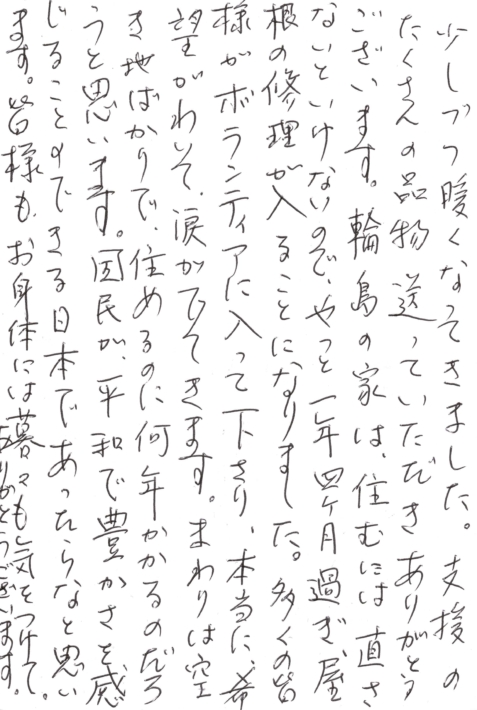 少しづつ暖くなってきました。支援の
たくさんの品物送っていただきありがとう
ございます。輪島の家は、住むには直さ
ないといけないので、やっと一年四ヶ月過ぎ、屋
根の修理が入ることになりました。多くの皆
様がボランティアに入って下さり、本当に、希
望がわいて、涙がでてきます。まわりは空
き地ばかりで、住めるのに何年かかるのだろ
うと思います。国民が、平和で豊かさを感
じることのできる日本であったらなと思い
ます。皆様も、お身体には暮々も気をつけて。
ありがとうございます。